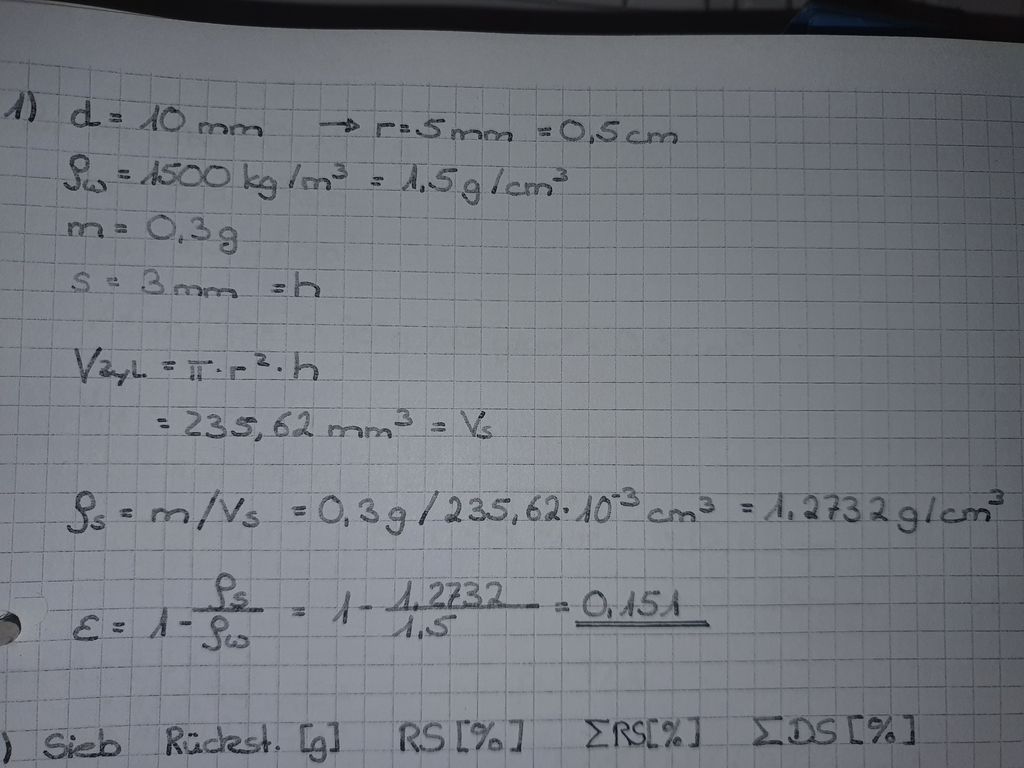 1) d = 10 mm → r = 5 mm = 0,5 cm
ρw = 1500 kg/m³ = 1,5 g/cm³
m = 0,3 g
s = 3 mm = h
Vzyl = π · r² · h
= 235,62 mm³ = Vs
ρs = m/Vs = 0,3 g / 235,62 · 10⁻³ cm³ = 1,2732 g/cm³
ε = 1 - ρs/ρw = 1 - 1,2732/1,5 = 0,151
) Sieb Rückst. [g] RS [%] ΣRS[%] ΣDS [%]